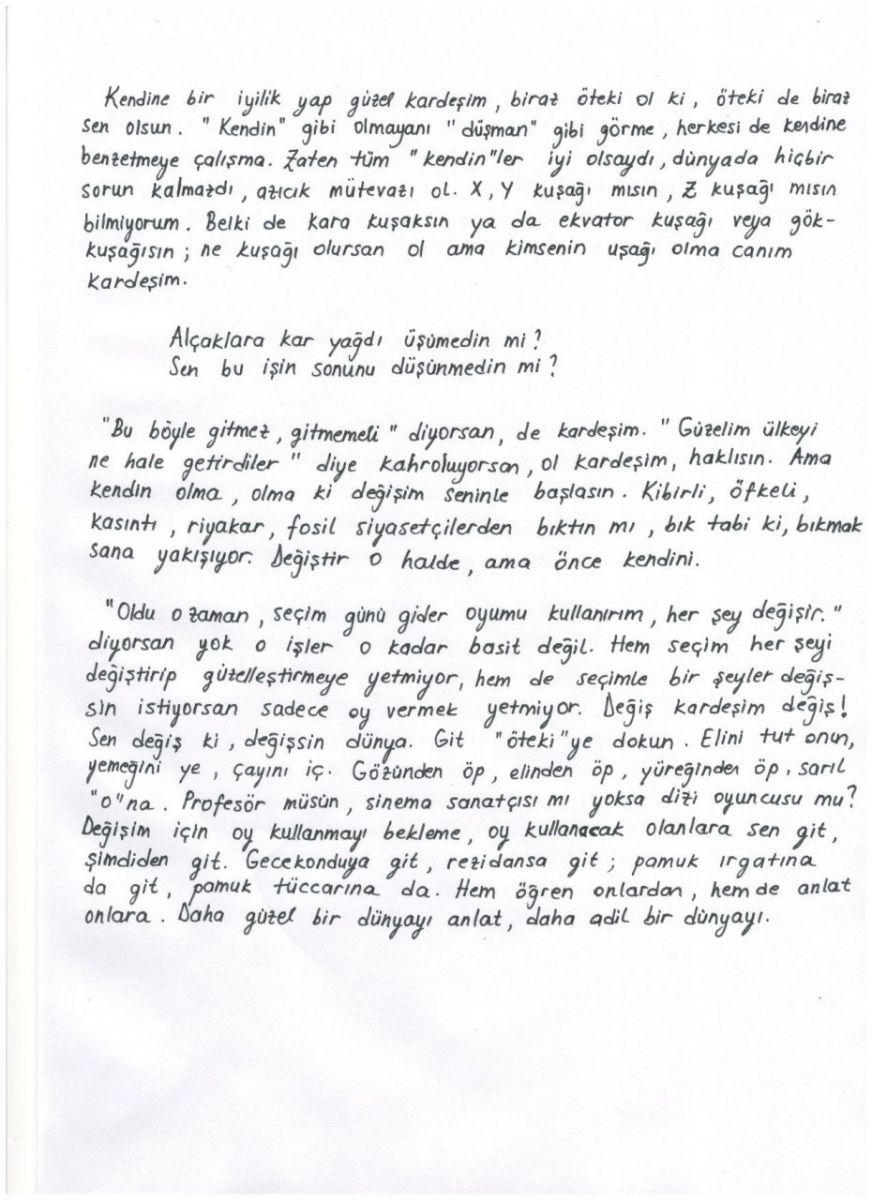 Kendine bir iyilik yap güzel kardeşim, biraz öteki ol ki, öteki de biraz
sen olsun. "Kendin" gibi olmayanı "düşman" gibi görme, herkesi de kendine
benzetmeye çalışma. Zaten tüm "kendin"ler iyi olsaydı, dünyada hiçbir
sorun kalmazdı, azıcık mütevazı ol. X, Y kuşağı mısın, Z kuşağı mısın
bilmiyorum. Belki de kara kuşaksın ya da ekvator kuşağı veya gök-
kuşağısın; ne kuşağı olursan ol ama kimsenin uşağı olma canım
kardeşim.
Alçaklara kar yağdı üşümedin mi?
Sen bu işin sonunu düşünmedin mi?
"Bu böyle gitmez, gitmemeli" diyorsan, de kardeşim. "Güzelim ülkeyi
ne hale getirdiler" diye kahroluyorsan, ol kardeşim, haklısın. Ama
kendin olma, olma ki değişim seninle başlasın. Kibirli, öfkeli,
kasıntı, riyakar, fosil siyasetçilerden bıktın mı, bık tabi ki, bıkmak
sana yakışıyor. Değiştir o halde, ama önce kendini.
"Oldu o zaman, seçim günü gider oyumu kullanırım, her şey değişir."
diyorsan yok o işler o kadar basit değil. Hem seçim her şeyi
değiştirip güzelleştirmeye yetmiyor, hem de seçimle bir şeyler değiş-
sin istiyorsan sadece oy vermek yetmiyor. Değiş kardeşim değiş!
Sen değiş ki, değişsin dünya. Git "öteki"ye dokun. Elini tut onun,
yemeğini ye, çayını iç. Gözünden öp, elinden öp, yüreğinden öp, sarıl
"o"na. Profesör müsün, sinema sanatçısı mı yoksa dizi oyuncusu mu?
Değişim için oy kullanmayı bekleme, oy kullanacak olanlara sen git,
şimdiden git. Gecekonduya git, rezidansa git; pamuk ırgatına
da git, pamuk tüccarına da. Hem öğren onlardan, hem de anlat
onlara. Daha güzel bir dünyayı anlat, daha adil bir dünyayı.